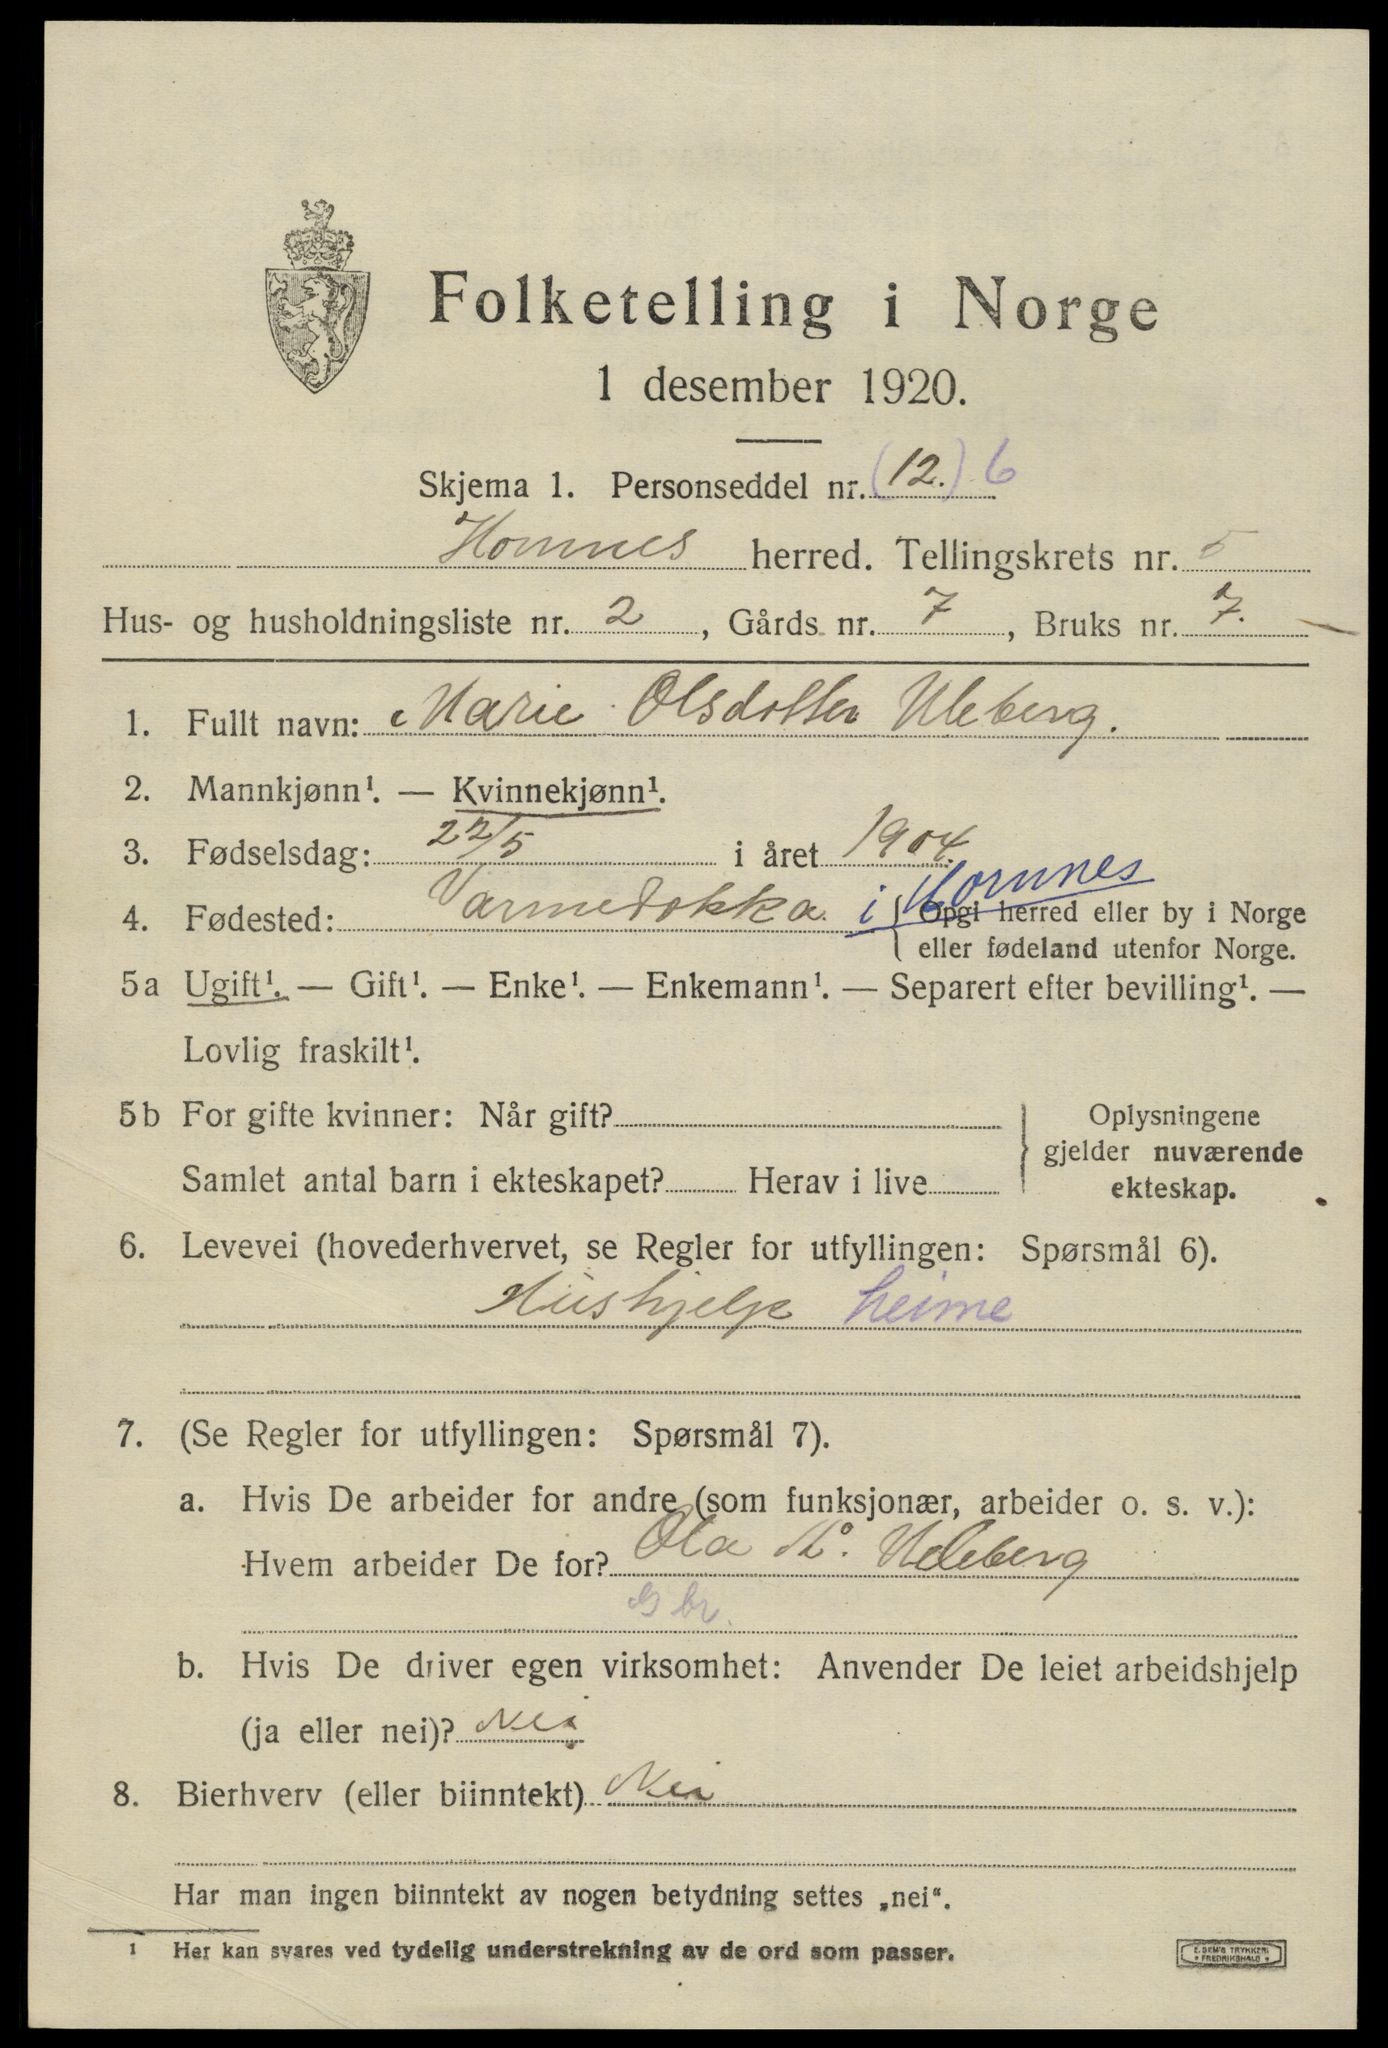 Folketelling i Norge
1 desember 1920.
Skjema 1. Personseddel nr. (12.) 6
Hornnes herred. Tellingskrets nr. 5
Hus- og husholdningsliste nr. 2, Gårds nr. 7, Bruks nr. 7.
1. Fullt navn: Marie Olsdotter Uleberg.
2. Mannkjønn¹. — Kvinnekjønn¹.
3. Fødselsdag: 22/5 i året 1904.
4. Fødested: i Hornnes { Opgi herred eller by i Norge
eller fødeland utenfor Norge.
5a Ugift¹. — Gift¹. — Enke¹. — Enkemann¹. — Separert efter bevilling¹. —
Lovlig fraskilt¹.
5b For gifte kvinner: Når gift? } Oplysningene
gjelder nuværende
Samlet antal barn i ekteskapet? Herav i live
ekteskap.
6. Levevei (hovederhvervet, se Regler for utfyllingen: Spørsmål 6).
Hushjelp heime
7. (Se Regler for utfyllingen: Spørsmål 7).
a. Hvis De arbeider for andre (som funksjonær, arbeider o. s. v.):
Hvem arbeider De for? Ola Uleberg
G br.
b. Hvis De driver egen virksomhet: Anvender De leiet arbeidshjelp
(ja eller nei)? Nei
8. Bierhverv (eller biinntekt) Nei
Har man ingen biinntekt av nogen betydning settes „nei“.
¹ Her kan svares ved tydelig understrekning av de ord som passer.
E. SEM'S TRYKKERI
• FREDRIKSHALD •